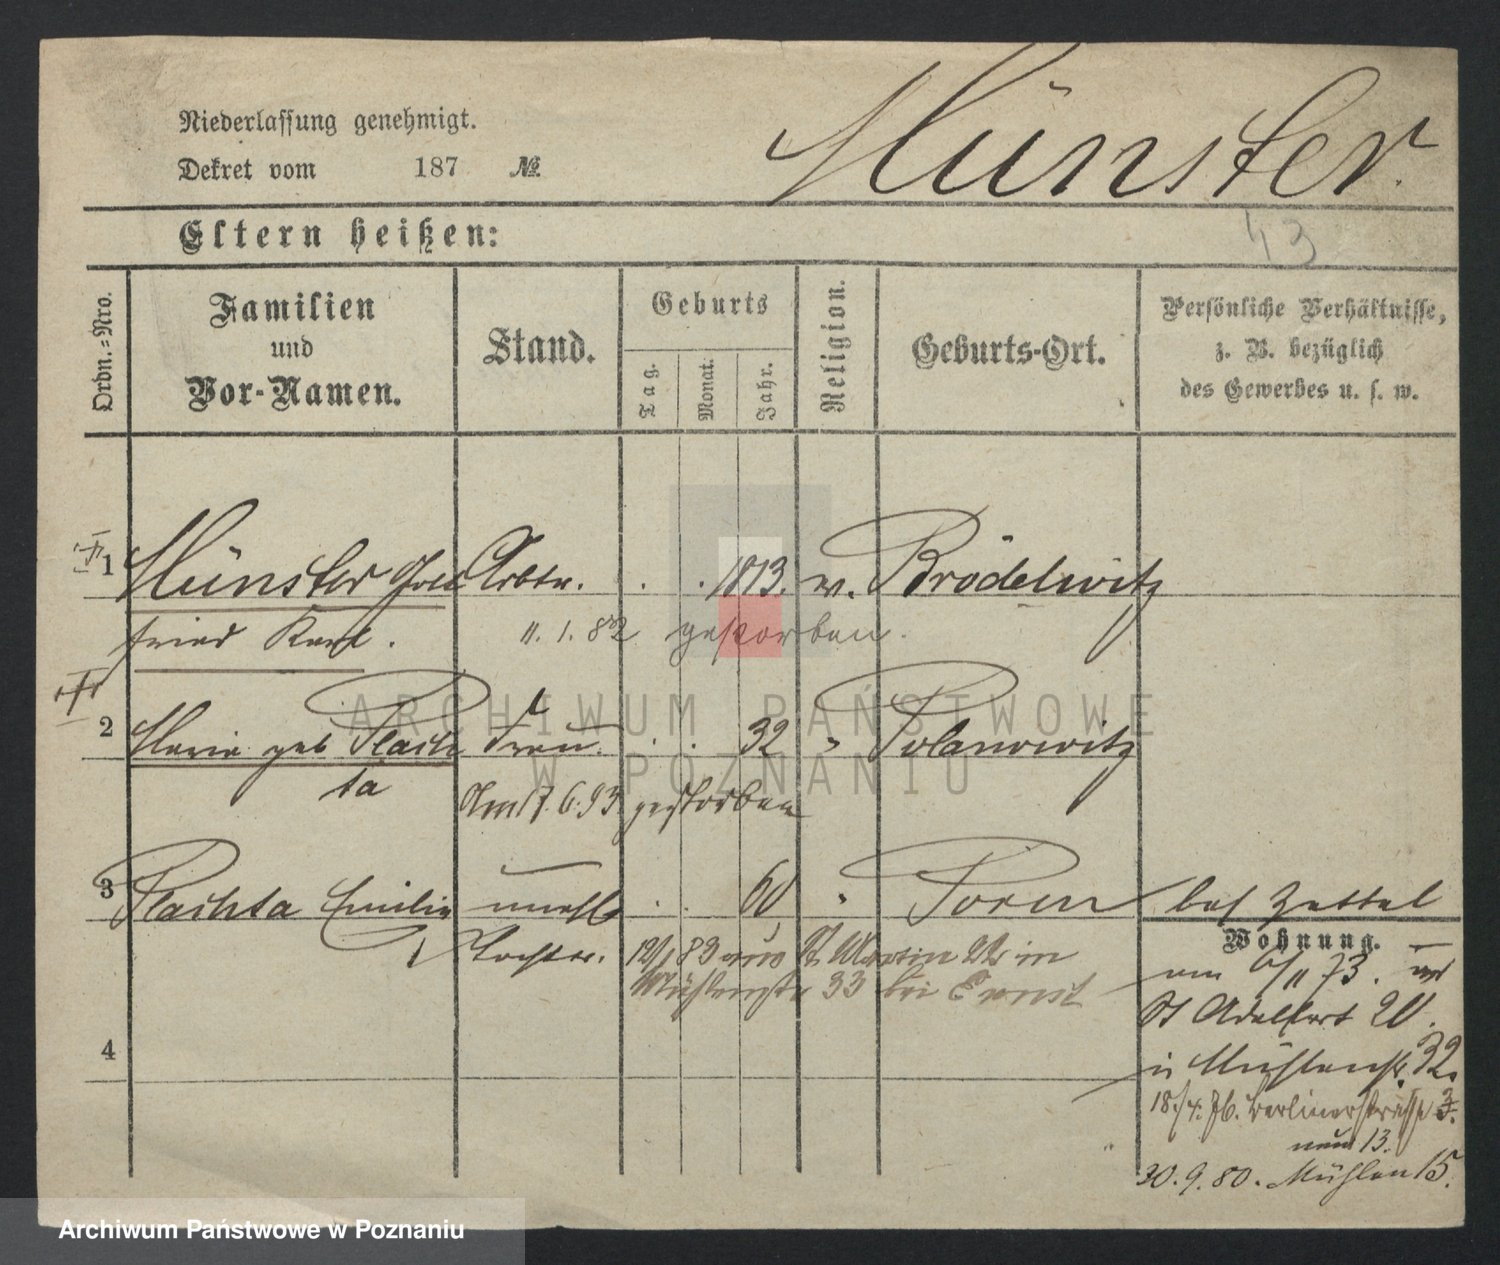 Niederlassung genehmigt.
Dekret vom 187 №
Münster.
43
Eltern heißen:
Ordn.-Nro.
Familien
und
Vor-Namen.
Stand.
Geburts
Tag.
Monat.
Jahr.
Religion.
Geburts-Ort.
Persönliche Verhältnisse,
z. B. bezüglich
des Gewerbes u. s. w.
1 Münster Gott Arbtr. . . 1813. ev. Brödelwitz
fried Karl. 11. 1. 82 gestorben.
2 Maria geb Plach Frau. . . 32 " Polanowitz
ta Am 17. 6. 93 gestorben
3 Plachta Emilie unehl . . 60 " Posen
Tochter. 12/1 83 aus St. Martin 22 in
Mühlenstr 33 bei Ernst
4
bes Zettel
Wohnung.
am 6/11 73.
St Adalbert 20.
in Mühlenstr. 32.
18./4. 76. Berlinerstrasse 3.
neu 13.
30. 9. 80. Mühlen 15.
ARCHIWUM PAŃSTWOWE
W POZNANIU
Archiwum Państwowe w Poznaniu